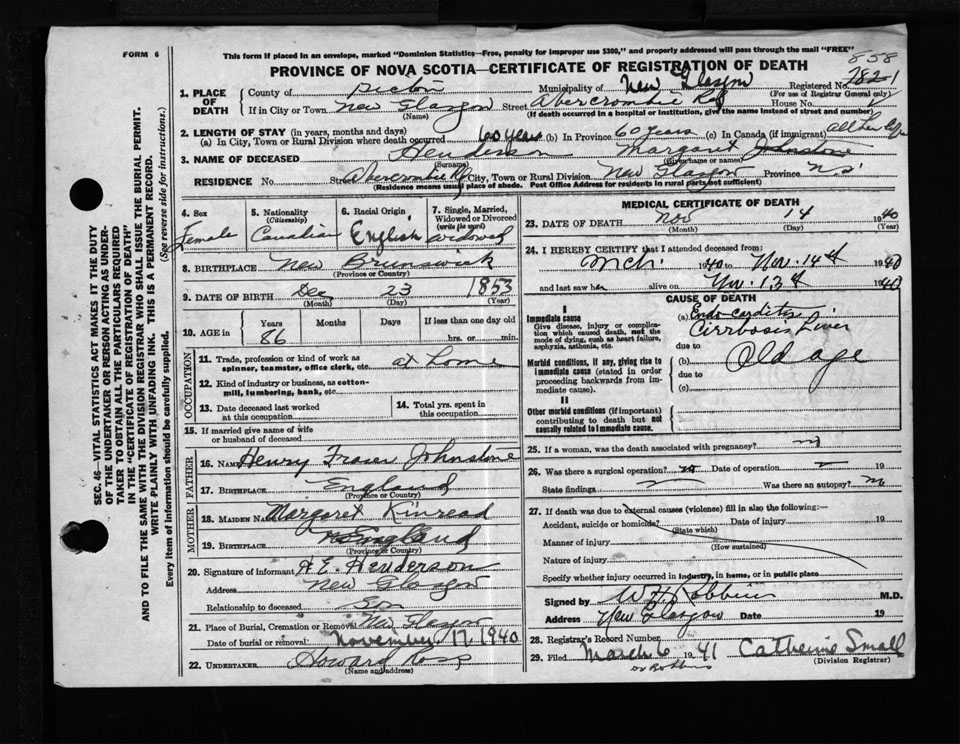 FORM 6
This form if placed in an envelope, marked "Dominion Statistics—Free, penalty for improper use $300," and properly addressed will pass through the mail "FREE"
858
PROVINCE OF NOVA SCOTIA—CERTIFICATE OF REGISTRATION OF DEATH
1. PLACE OF DEATH
County of Pictou Municipality of New Glasgow Registered No. 7821
(For use of Registrar General only)
If in City or Town New Glasgow Street Abercrombie Rd House No.
(Name) (If death occurred in a hospital or institution, give the name instead of street and number)
2. LENGTH OF STAY (in years, months and days)
(a) In City, Town or Rural Division where death occurred 60 years (b) In Province 60 years (c) In Canada (if immigrant) all her life
3. NAME OF DECEASED Henderson Margaret Johnstone
(Surname) (Given name or names)
RESIDENCE No. Street Abercrombie Rd City, Town or Rural Division New Glasgow Province N.S
(Residence means usual place of abode. Post Office Address for residents in rural parts not sufficient)
4. Sex Female
5. Nationality (Citizenship) Canadian
6. Racial Origin English
7. Single, Married, Widowed or Divorced (write the word) widowed
8. BIRTHPLACE New Brunswick
(Province or Country)
9. DATE OF BIRTH Dec 23 1853
(Month) (Day) (Year)
10. AGE in Years 86 Months Days If less than one day old hrs. or min.
OCCUPATION
11. Trade, profession or kind of work as spinner, teamster, office clerk, etc. at home
12. Kind of industry or business, as cotton-mill, lumbering, bank, etc.
13. Date deceased last worked at this occupation
14. Total yrs. spent in this occupation
15. If married give name of wife or husband of deceased
FATHER
16. NAME Henry Fraser Johnstone
17. BIRTHPLACE England
(Province or Country)
MOTHER
18. MAIDEN NAME Margaret Kinread
19. BIRTHPLACE England
(Province or Country)
20. Signature of informant H.E. Henderson
Address New Glasgow
Relationship to deceased Son
21. Place of Burial, Cremation or Removal New Glasgow
Date of burial or removal November 17 1940
22. UNDERTAKER Howard Ross
(Name and Address)
MEDICAL CERTIFICATE OF DEATH
23. DATE OF DEATH Nov 14 1940
(Month) (Day) (Year)
24. I HEREBY CERTIFY that I attended deceased from:
Mch. 1940 to Nov. 14th 1940
and last saw her alive on Nov. 13th 1940
CAUSE OF DEATH
I
Immediate cause
Give disease, injury or complication which caused death, not the mode of dying, such as heart failure, asphyxia, asthenia, etc.
(a) Endocarditis
Cirrhosis Liver
due to
Morbid conditions, if any, giving rise to immediate cause (stated in order proceeding backwards from immediate cause).
(b) Old age
due to
(c)
II
Other morbid conditions (if important) contributing to death but not causally related to immediate cause.
25. If a woman, was the death associated with pregnancy? no
26. Was there a surgical operation? no Date of operation 19
State findings Was there an autopsy? no
27. If death due to external causes (violence) fill in also the following:—
Accident, suicide or homicide? Date of injury 19
(State which)
Manner of injury
(How sustained)
Nature of injury
Specify whether injury occurred in industry, in home, or in public place
Signed by W H Robbins M.D.
Address New Glasgow Date 19
28. Registrar's Record Number
29. Filed March 6 1941 Catherine Small
(Division Registrar)
Dr Robbins
SEC. 46—VITAL STATISTICS ACT MAKES IT THE DUTY
OF THE UNDERTAKER OR PERSON ACTING AS UNDERTAKER
TO OBTAIN ALL THE PARTICULARS REQUIRED
IN THE "CERTIFICATE OF REGISTRATION OF DEATH"
AND TO FILE THE SAME WITH THE DIVISION REGISTRAR WHO SHALL ISSUE THE BURIAL PERMIT.
WRITE PLAINLY WITH UNFADING INK. THIS IS A PERMANENT RECORD.
Every item of information should be carefully supplied. (See reverse side for instructions.)